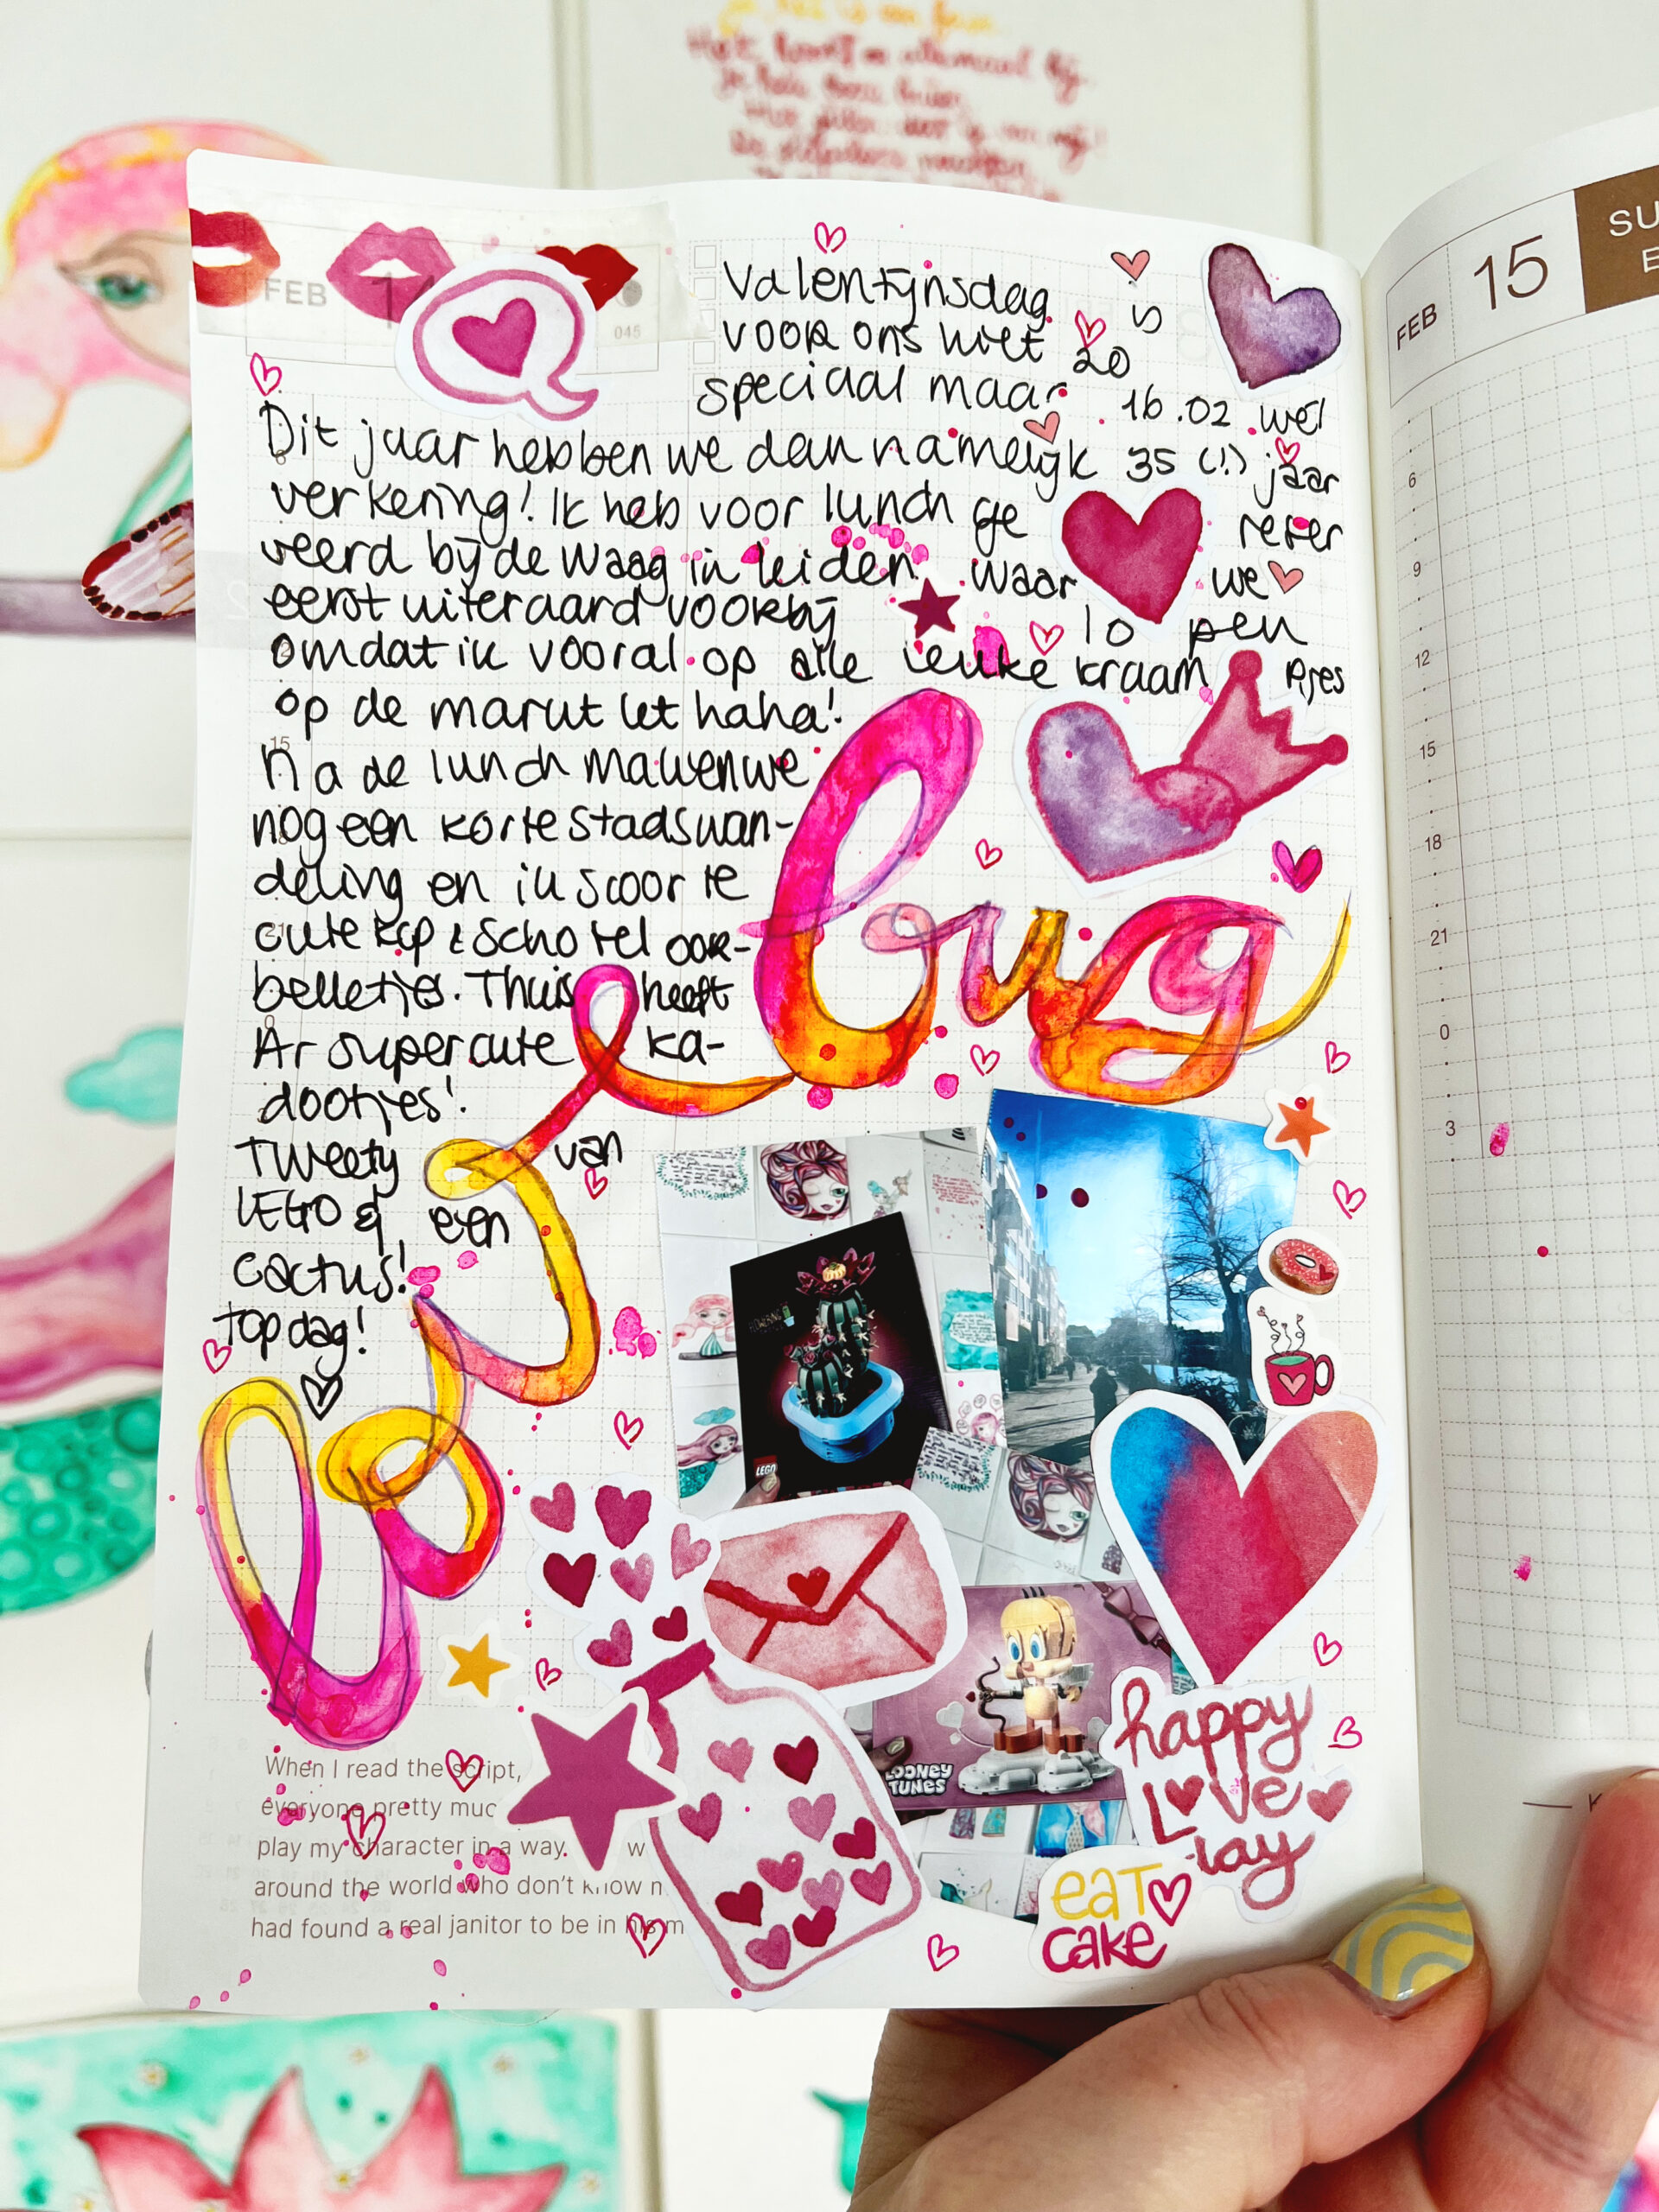 FEB 14
045
Valentijnsdag is
voor ons niet zo
speciaal maar 16.02 wel
Dit jaar hebben we dan namelijk 35 (!) jaar
verkering! Ik heb voor lunch ge reser
veerd bij de Waag in Leiden waar we
eerst uiteraard voorbij lo pen
omdat ik vooral op alle leuke kraam pjes
op de markt let haha!
Na de lunch maken we
nog een korte stadswan-
deling en ik scoorte
cute kop & schotel oor-
belletjes. Thuis heeft
Ar supercute ka-
dootjes!
Tweety van
LEGO & een
cactus!
Topdag!
love
bug
LEGO
LOONEY TUNES
happy
Love
day
eaT
cake
When I read the script,
everyone pretty muc
play my character in a way. w
around the world who don't know
had found a real janitor to be in his m
FEB 15 SU
6
9
12
15
18
21
0
3